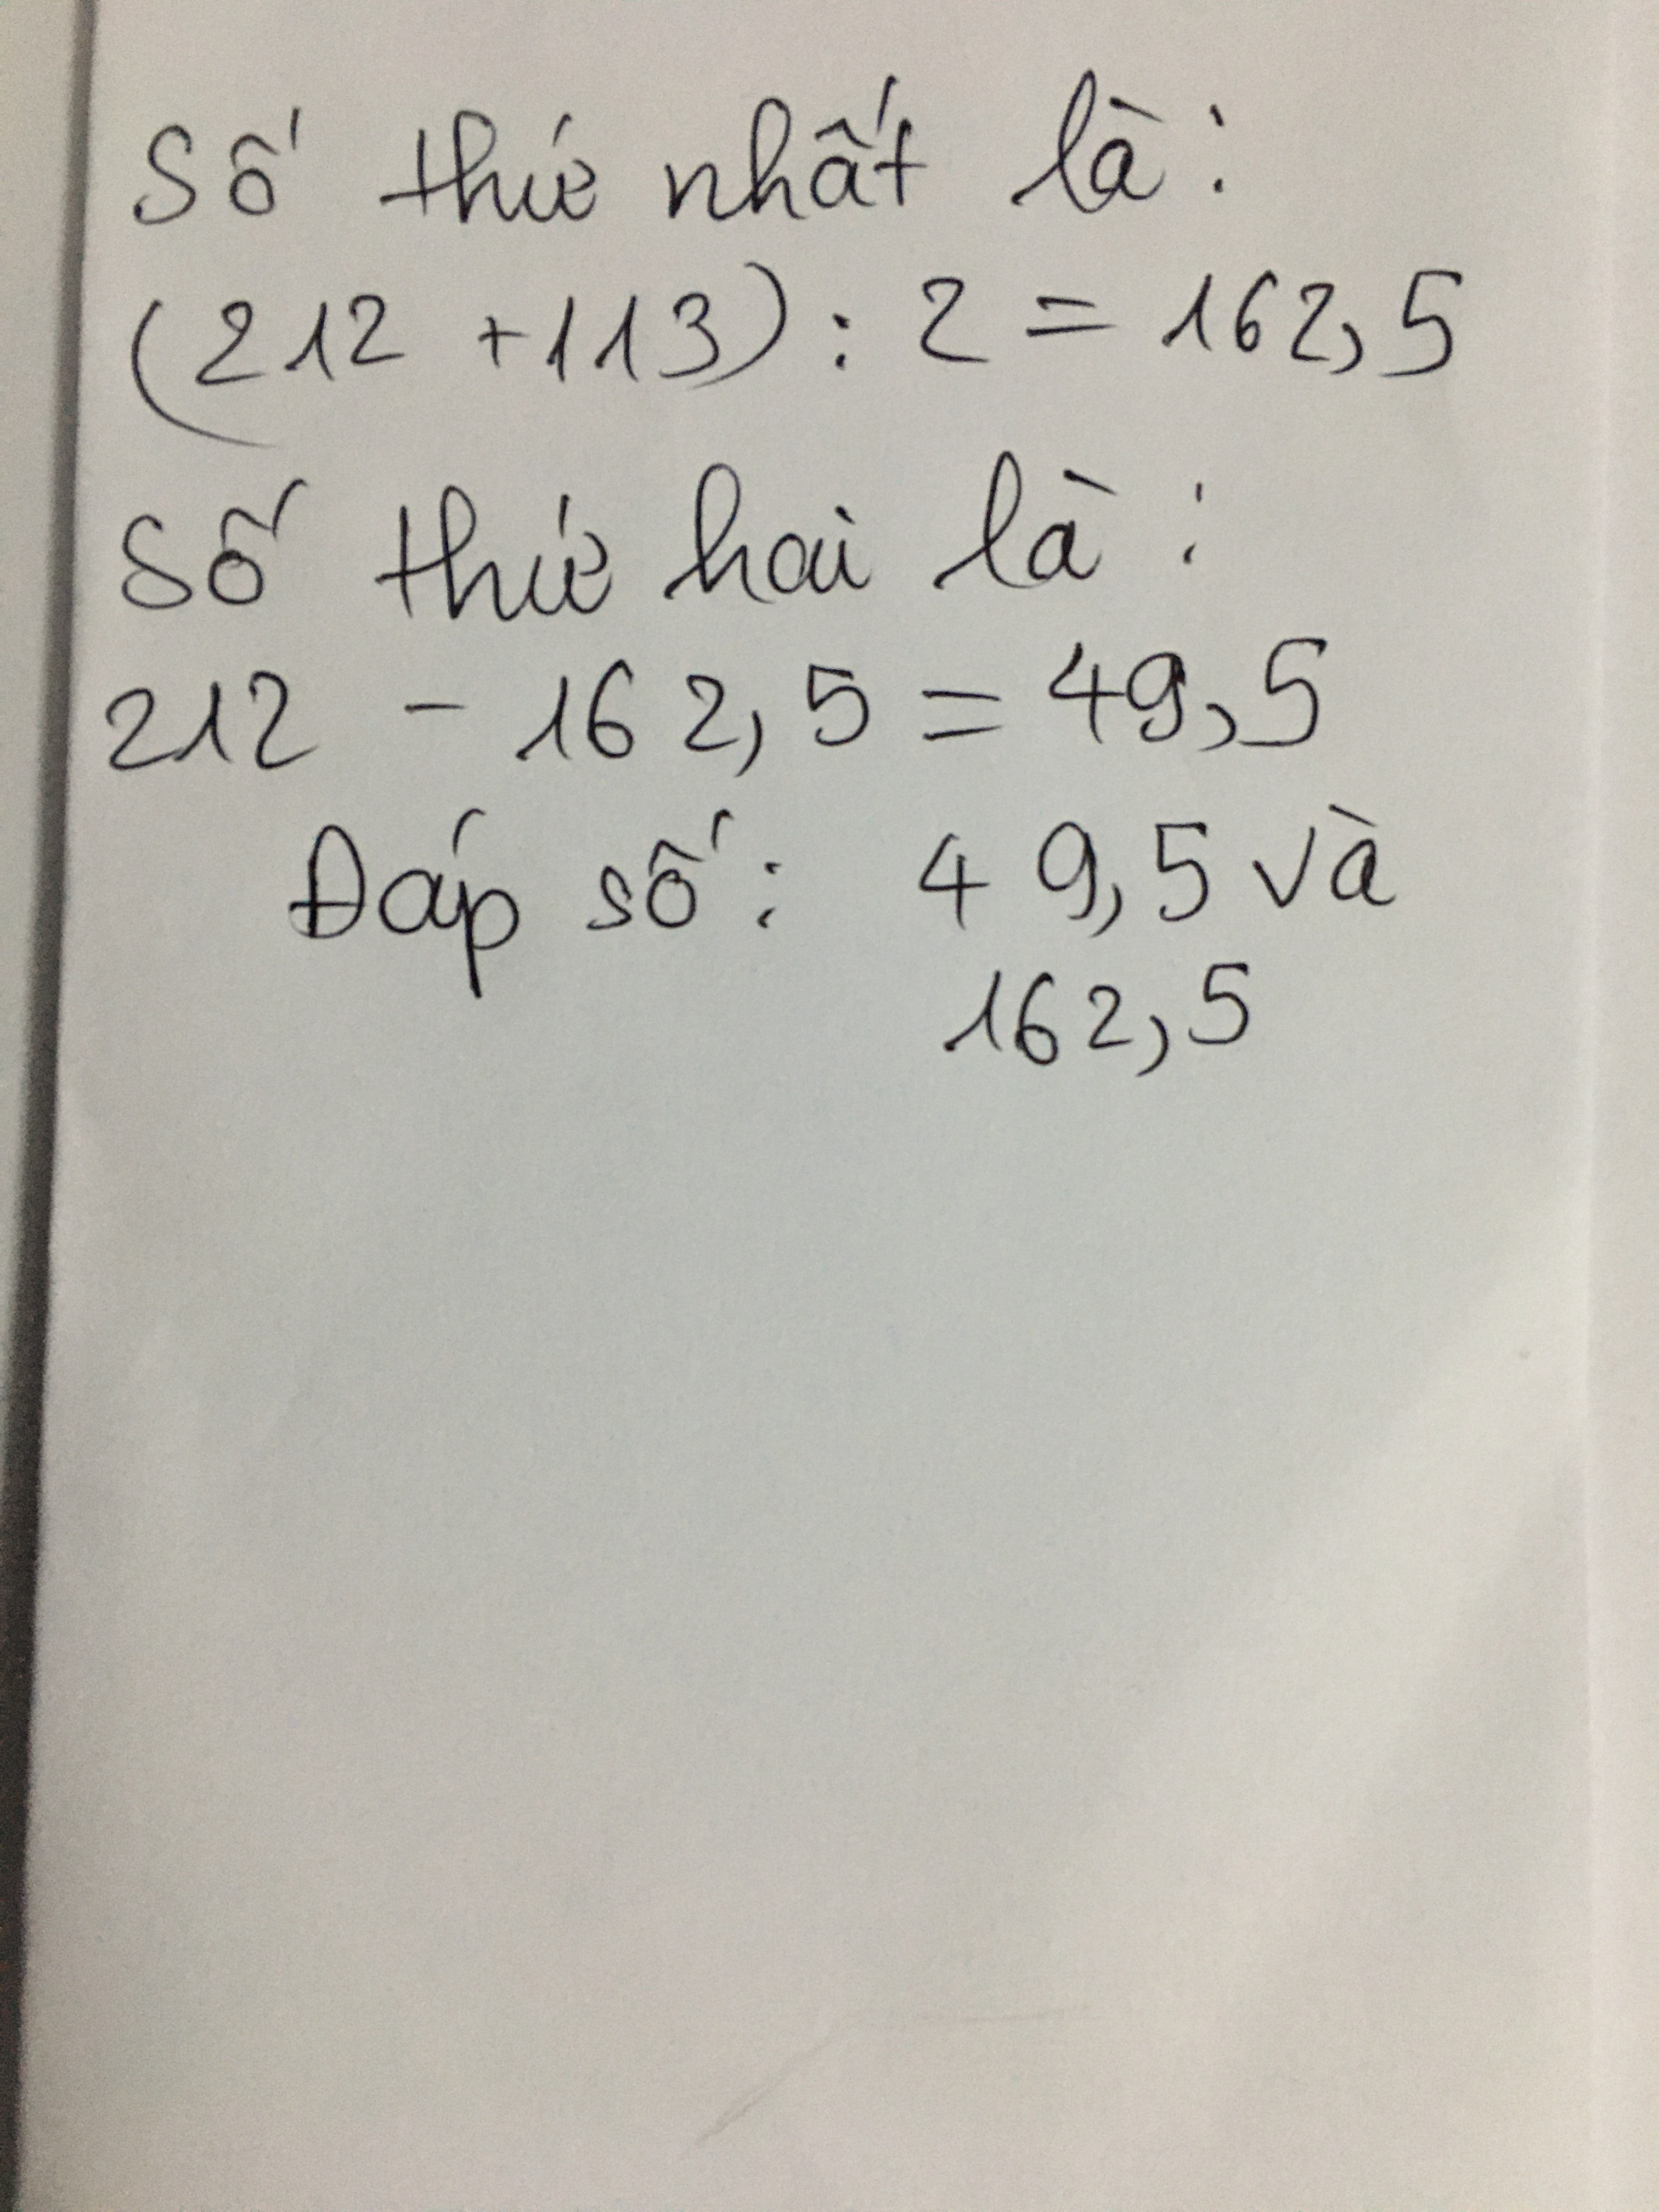 Số thứ nhất là:
(212 + 113) : 2 = 162,5
Số thứ hai là:
212 - 162,5 = 49,5
Đáp số: 49,5 và
162,5